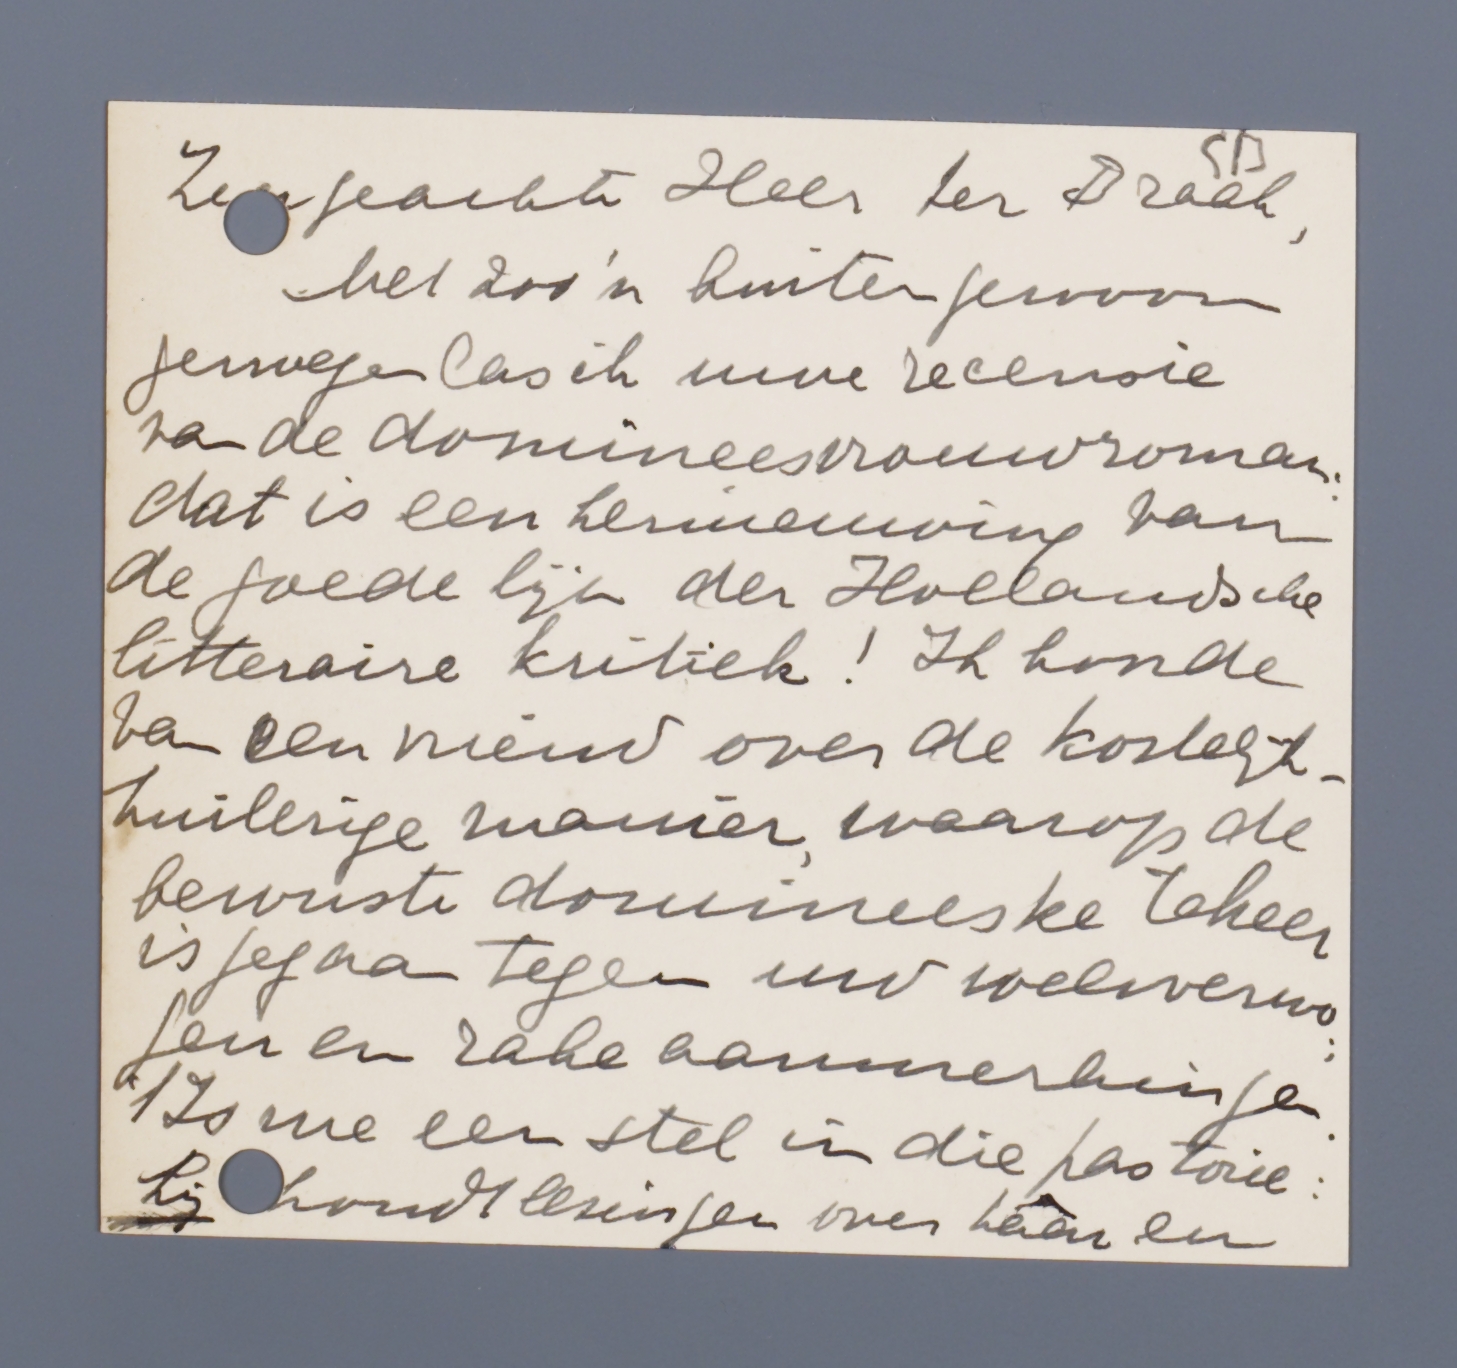 SB
Zeer geachte Heer ter Braak,
Met zoo'n buitengewoon
genoegen las ik uwe recensie
van de domineesvrouwroman:
dat is een hernieuwing van
de goede lijn der Hollandsche
litteraire kritiek! Ik hoorde
van een vriend over de kostelijk-
huilerige manier, waarop de
bewuste domineeske tekeer
is gegaan tegen uw welverwo-
gen en rake aanmerkingen.
't Is me een stel in die pastorie:
hij houdt lezingen over háár en